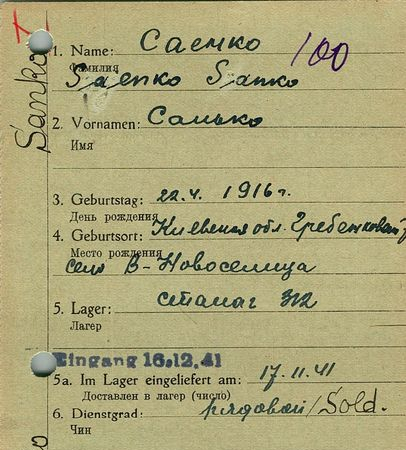 100
1. Name: Саенко
Фамилия
Saenko Sanko
2. Vornamen: Санько
Имя
Sanko
3. Geburtstag: 22.4. 1916 г.
День рождения
4. Geburtsort: Киевская обл. Гребенковский р
Место рождения
село В-Новоселица
5. Lager: сталаг 312
Лагер
Eingang 16.12.41
5a. Im Lager eingeliefert am: 17.11.41
Доставлен в лагер (число)
6. Dienstgrad: рядовой/Sold.
Чин